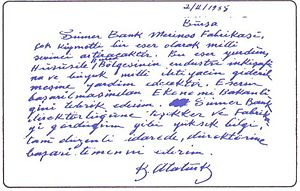 2/II/1938
Bursa
Sümer Bank Merinos Fabrikası,
çok kıymetli bir eser olarak millî
sevinci artıracaktır. Bu eser yurdun,
Hususile Bölgesinin endüstri inkişafı-
na ve büyük millî ihtiyacın gideril-
mesine yardım edecektir. Eserin
başarılmasından Ekonomi Bakanlı-
ğını tebrik ederim. Sümer Bank
direktörlüğüne teşekkür ve Fabrika-
yı gördüğüm gibi yüksek bilgi,
tam düzenli idarede, direktörüne
başarı temenni ederim.
K. Atatürk